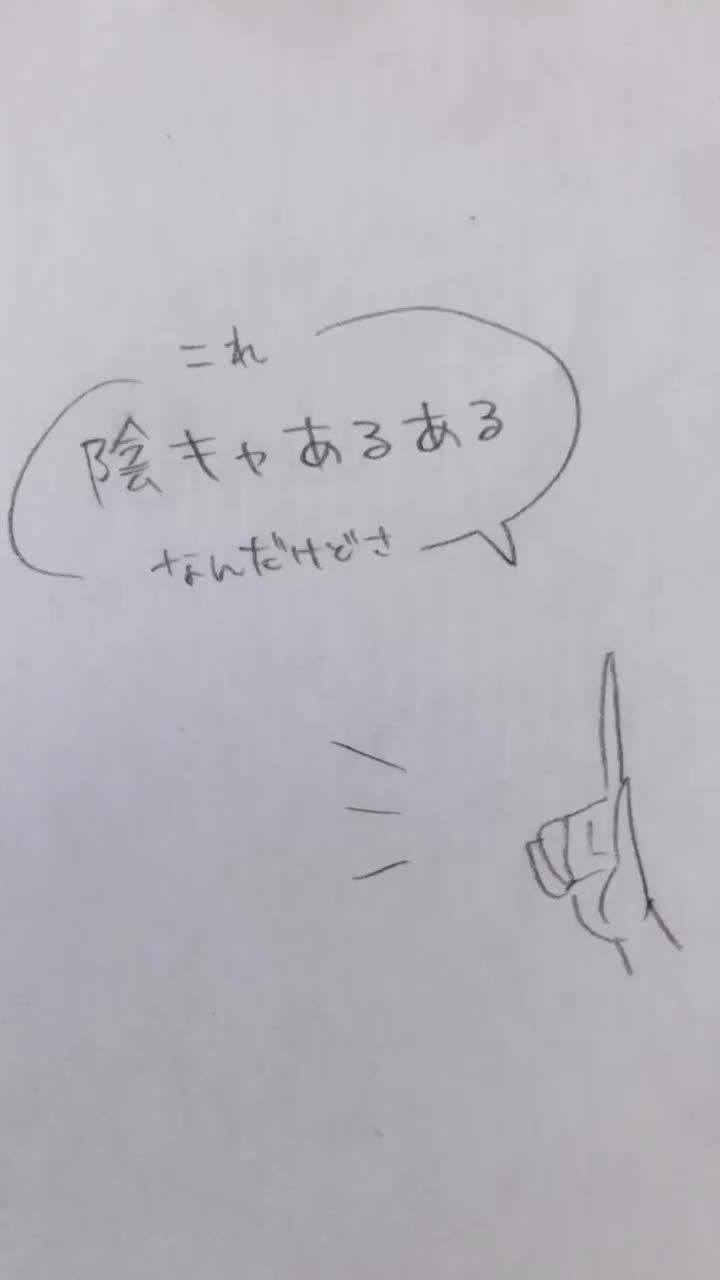 これ
陰キャあるある
なんだけどさ